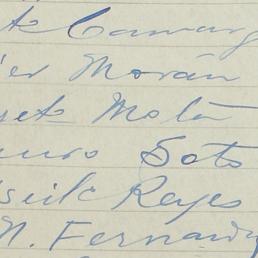 Camarg
er Morán
et Mota
uro Soto
Reyes
N. Fernand